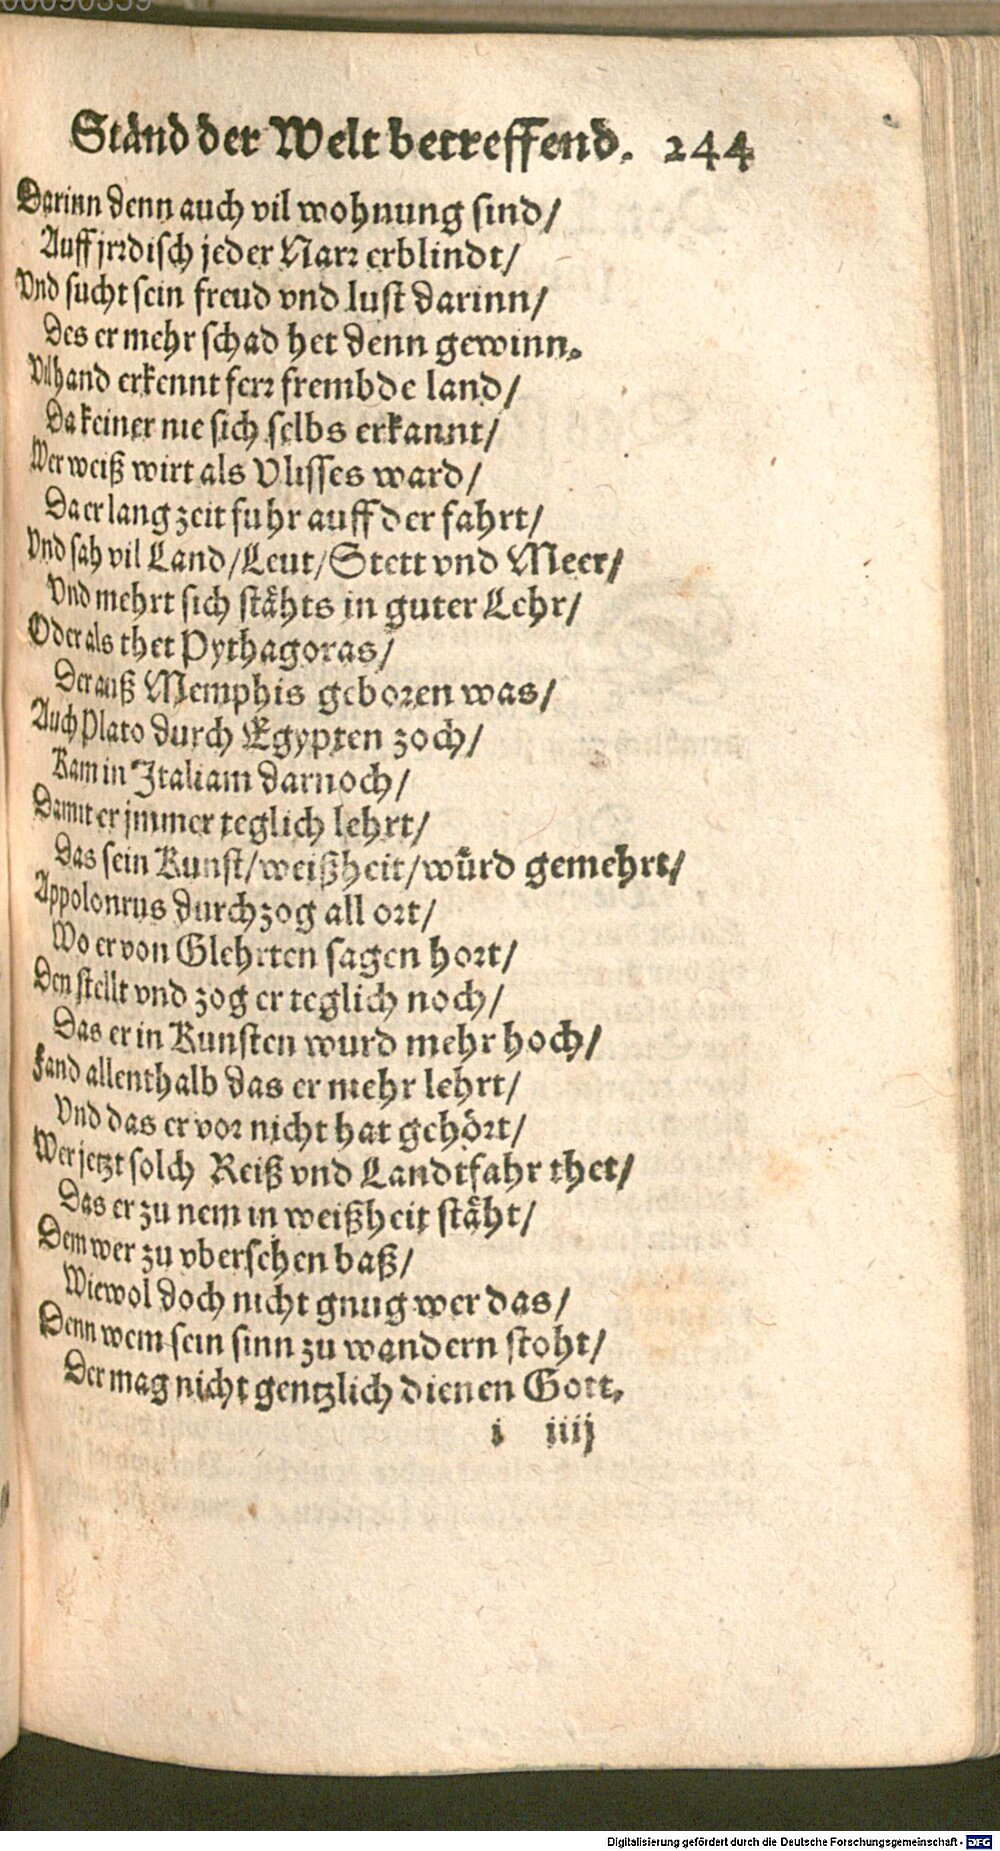 00090359
Ständ der Welt betreffend. 244
Darinn denn auch vil wohnung sind/
Auff jrrdisch jeder Narr erblindt/
Vnd sucht sein freud vnd lust darinn/
Des er mehr schad het denn gewinn.
Vil hand erkennt ferr frembde land/
Da keiner nie sich selbs erkannt/
Wer weiß wirt als Vlisses ward/
Da er lang zeit fuhr auff der fahrt/
Vnd sah vil Land/Leut/Stett vnd Meer/
Vnd mehrt sich stähts in guter Lehr/
Oder als thet Pythagoras/
Der auß Memphis geboren was/
Auch Plato durch Egypten zoch/
Kam in Italiam darnoch/
Damit er jmmer teglich lehrt/
Das sein Kunst/weißheit/würd gemehrt/
Appolonrus durchzog all ort/
Wo er von Glehrten sagen hort/
Den stellt vnd zog er teglich noch/
Das er in Kunsten wurd mehr hoch/
Fand allenthalb das er mehr lehrt/
Vnd das er vor nicht hat gehört/
Wer jetzt solch Reiß vnd Landtfahr thet/
Das er zu nem in weißheit stäht/
Dem wer zu vbersehen baß/
Wiewol doch nicht gnug wer das/
Denn wem sein sinn zu wandern stoht/
Der mag nicht gentzlich dienen Gott.
i iiij
Digitalisierung gefördert durch die Deutsche Forschungsgemeinschaft - DFG